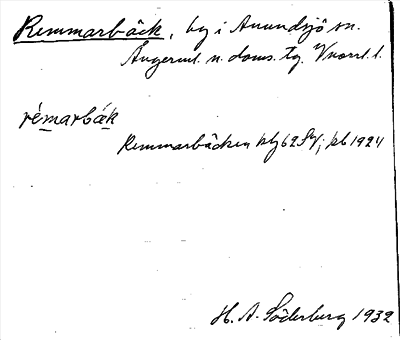 Remmarbäck, by i Anundsjö sn.
Ångerml. n. doms. tg. Vnorrl. l.
rémarbäk
Remmarbäcken jb 1924
H. A. Söderberg 1932